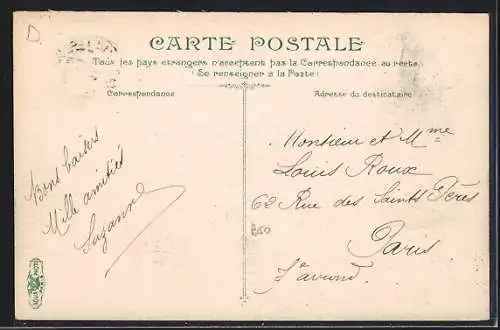 D.
CARTE POSTALE
Tous les pays étrangers n'acceptent pas la Correspondance au recto.
(Se renseigner à la Poste)
Correspondance
Adresse du destinataire
Bons baisers
Mille amitiés
Suzanne
Monsieur et Mme
Louis Roux
62 Rue des Saints Pères
Paris
7e arrond.